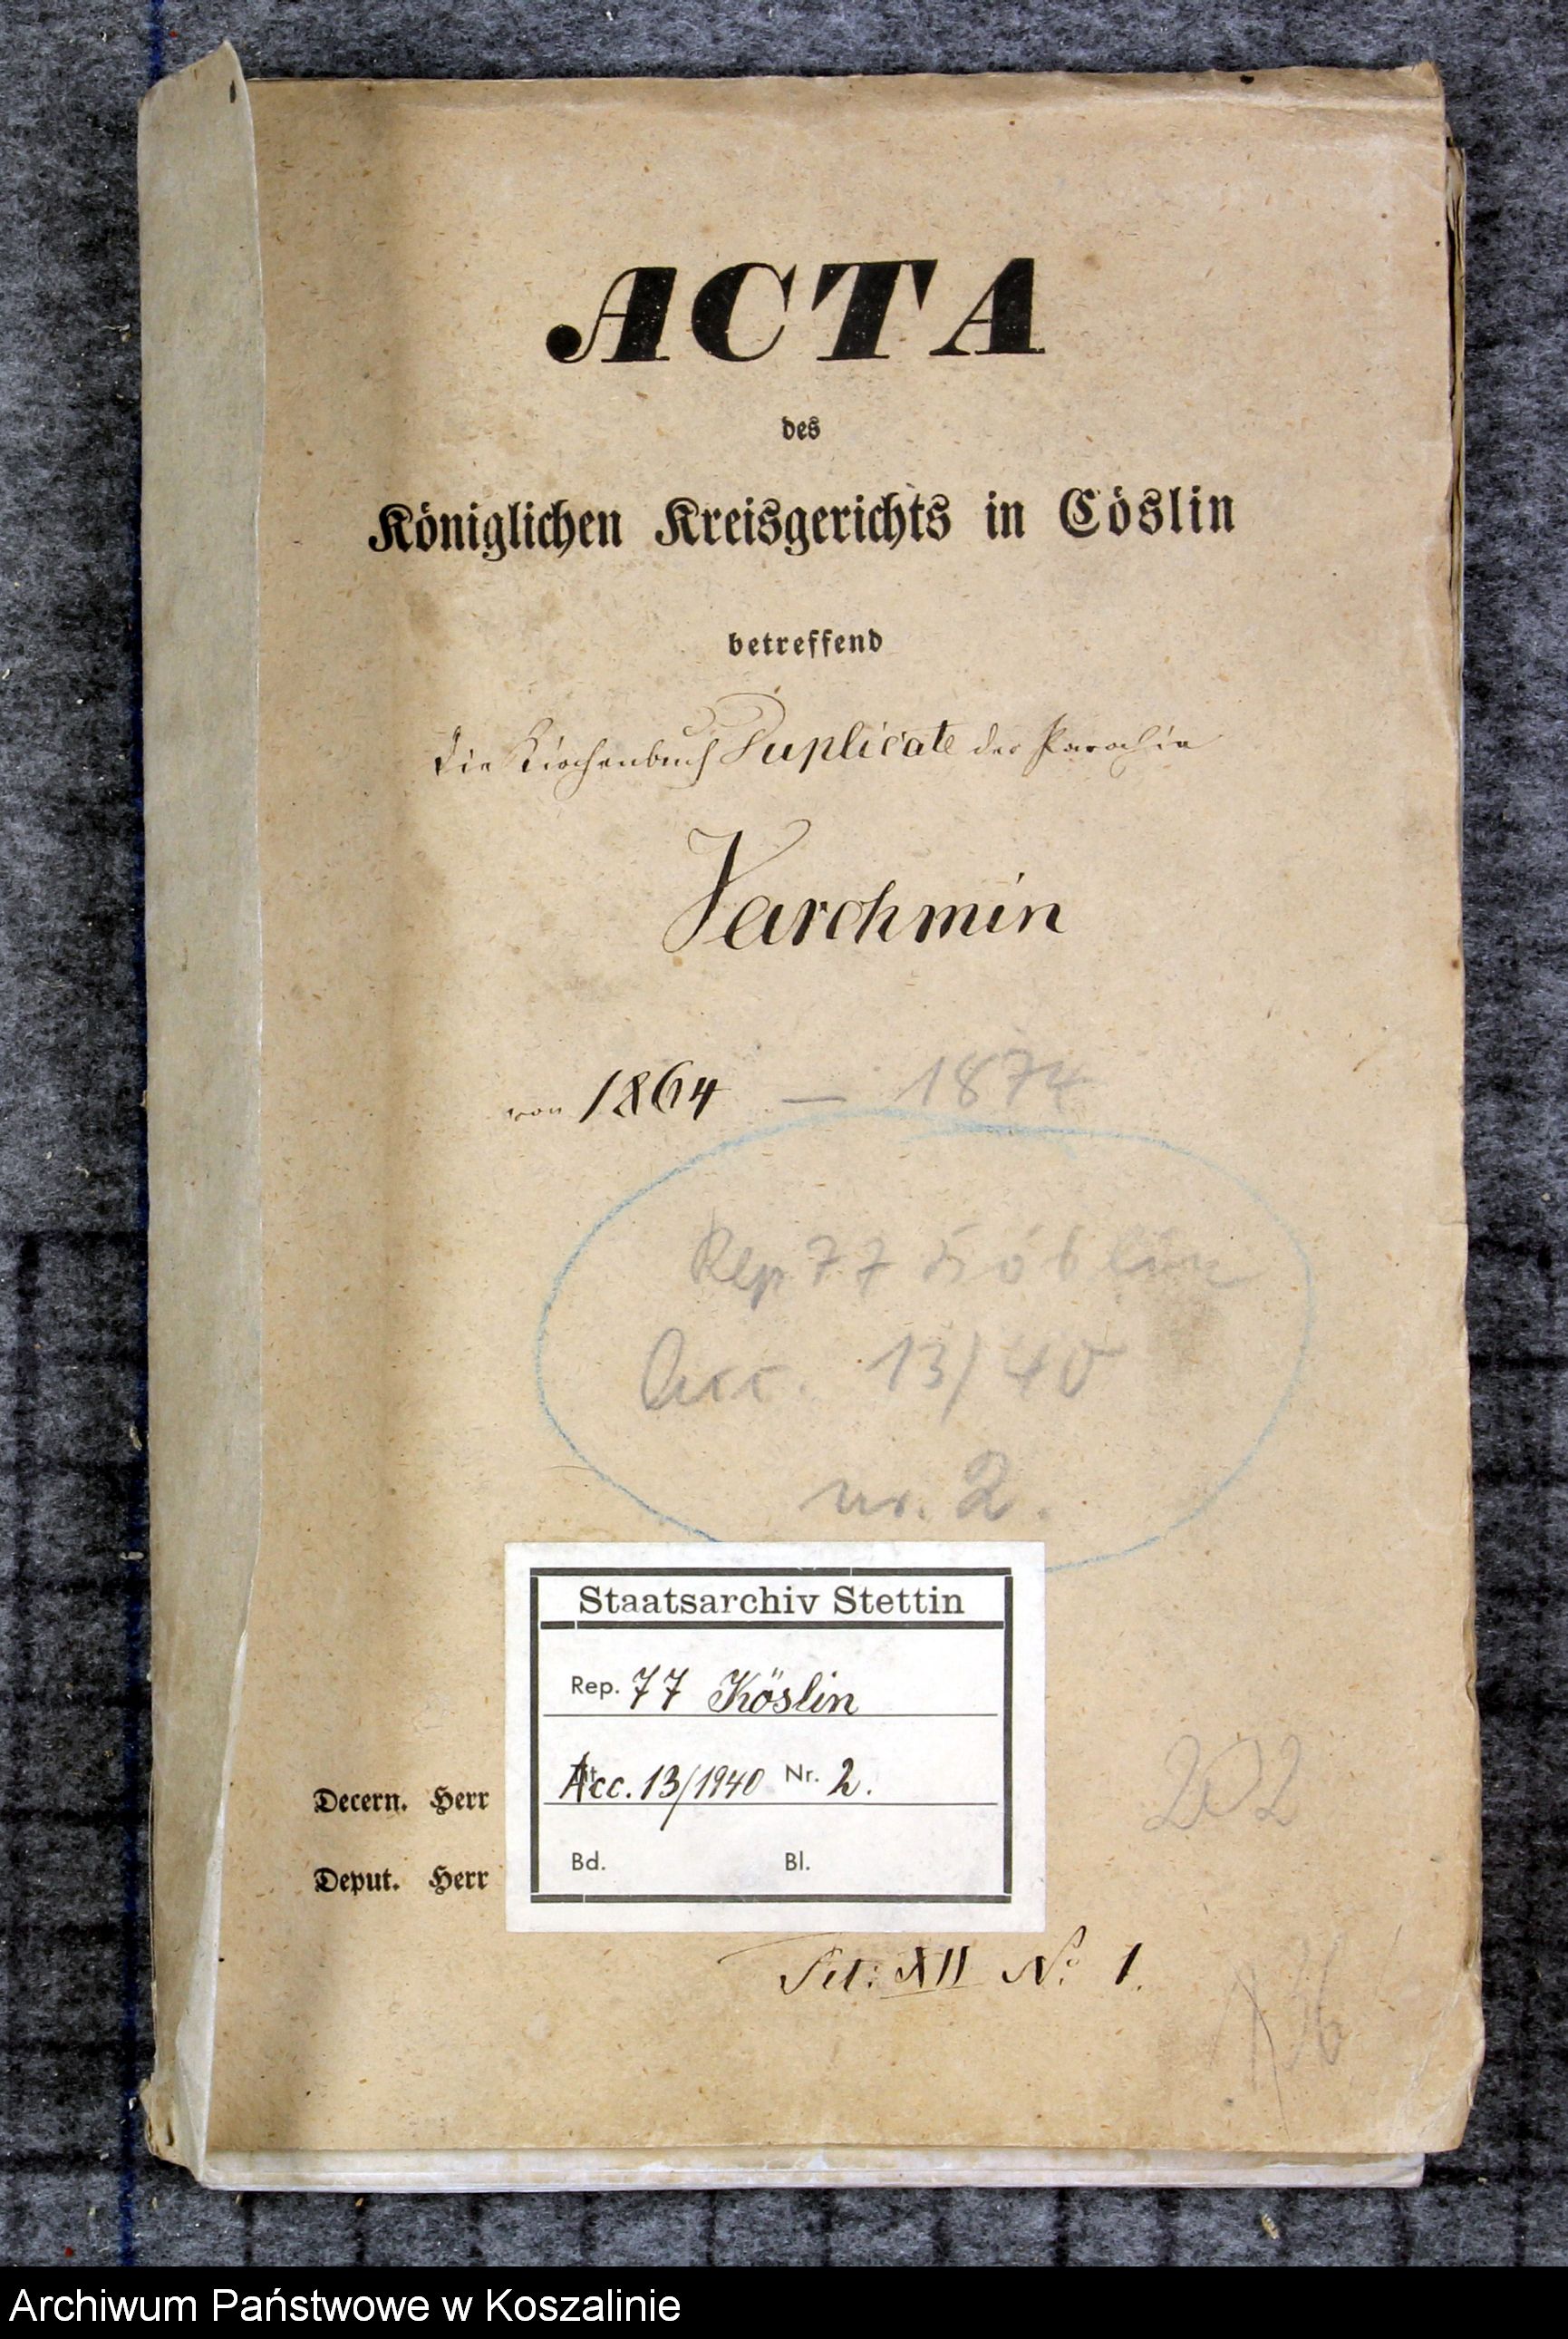 ACTA
des
Königlichen Kreisgerichts in Cöslin
betreffend
die Kirchenbuch Duplicate der Parochie
Varchmin
von 1864 — 1874
Rep 77 Köslin
Acc. 13/40
nr. 2.
Staatsarchiv Stettin
Rep. 77 Köslin
Acc. 13/1940 Nr. 2.
Bd. Bl.
Decern. Herr
Deput. Herr
202
Tit: XII No 1.
Archiwum Państwowe w Koszalinie